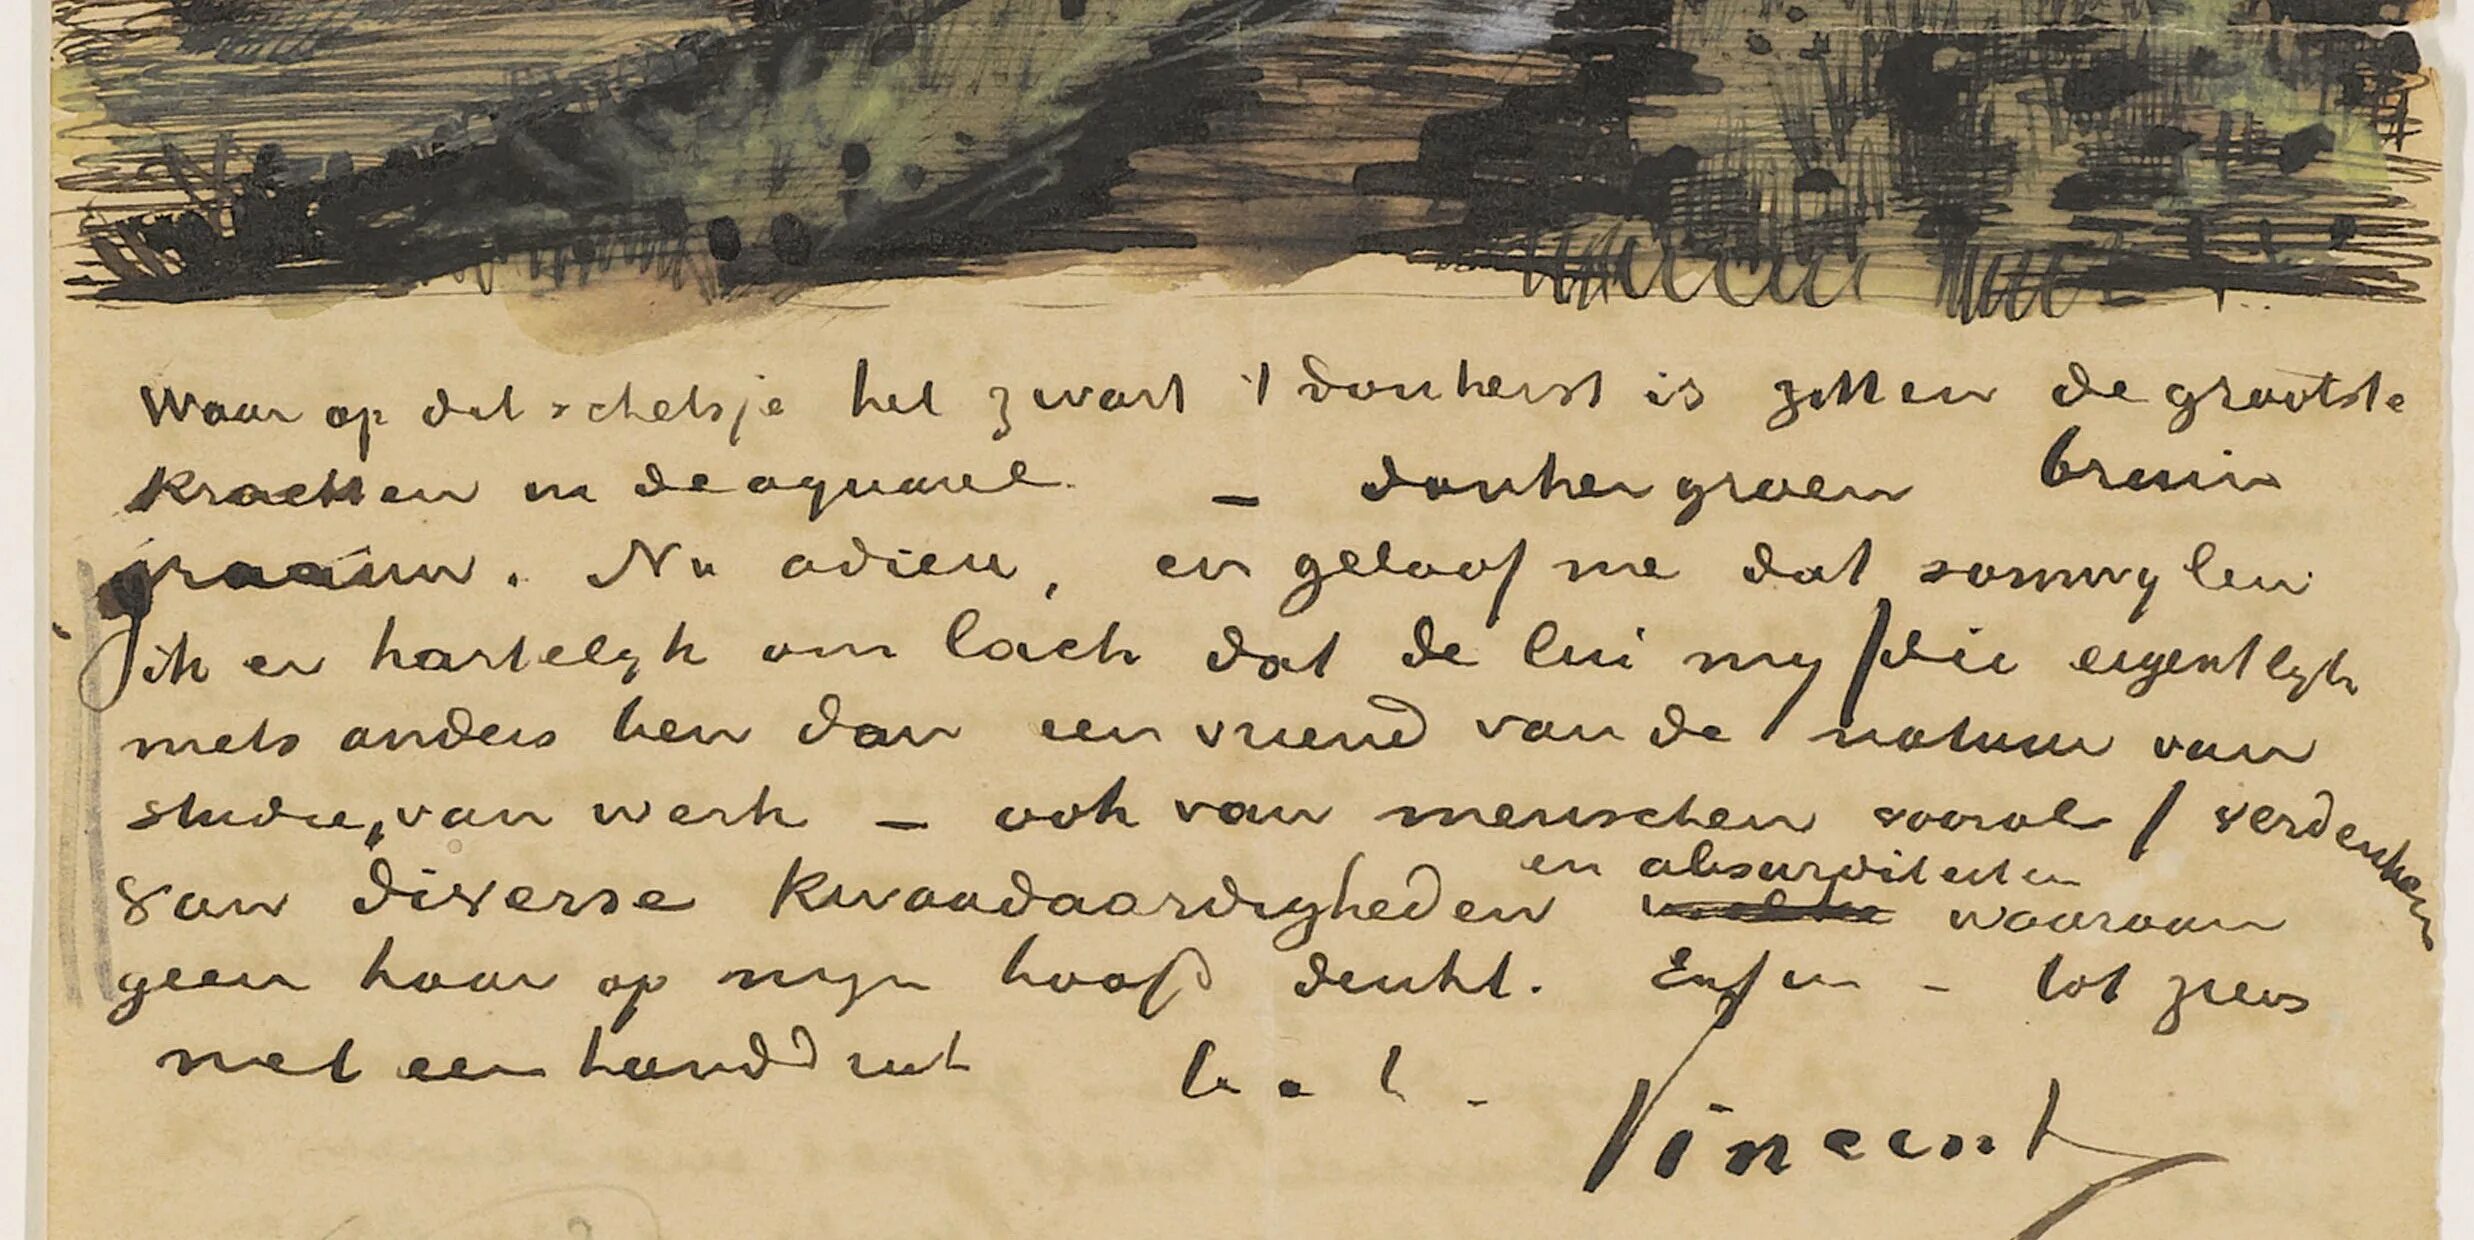 Waar op dat schetsje het zwart 't donkerst is zitten de grootste
krachten in de aquarel – donkergroen bruin
graauw. Nu adieu, en geloof me dat somwylen
ik er hartelyk om lach dat de lui my /die eigentlyk
niets anders ben dan een vriend van de natuur van
studie, van werk – ook van menschen vooral/ verdenken
van diverse kwaadaardigheden en absurditeiten waaraan
geen haar op myn hoofd denkt. Enfin – tot ziens
met een handdruk
Vincent